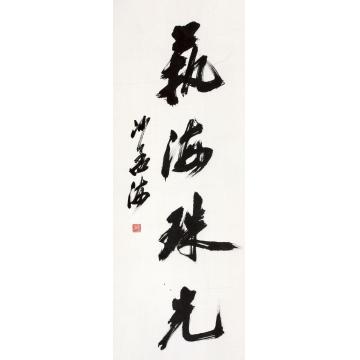 藝海珠光
沙孟海